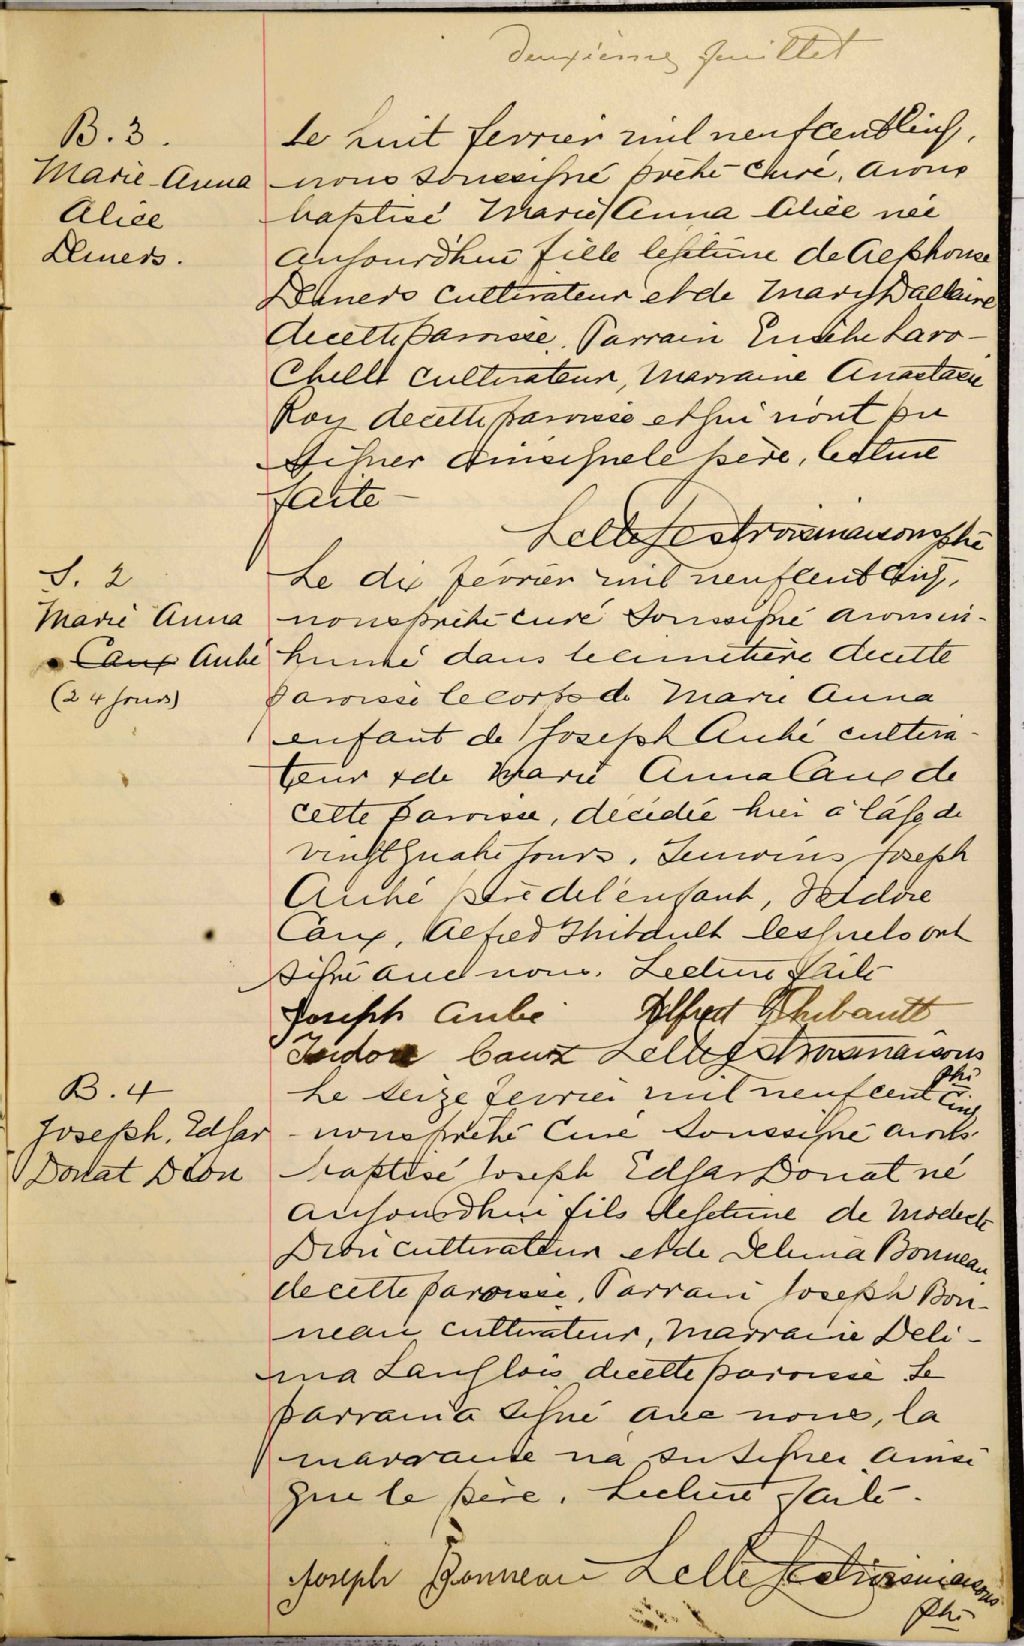 deuxième feuillet
B. 3.
Marie-Anna
Alice
Demers.
Le huit fevrier mil neuf cent cinq,
nous soussigné prêtre curé, avons
baptisé Marie Anna Alice née
aujourd'hui fille legitime de Alphonse
Demers cultivateur et de Mary Dallaire
de cette paroisse. Parrain Eusèbe Laro-
chelle cultivateur, Marraine Anastasie
Roy de cette paroisse et qui n'ont pu
signer ainsi que le père, lecture
faite -
Destroismaisons ptre
S. 2
Marie Anna
Caux Aubé
(24 jours)
Le dix février mil neuf cent cinq,
nous prêtre curé soussigné avons in-
humé dans le cimetière de cette
paroisse le corps de Marie Anna
enfant de Joseph Aubé cultiva-
teur & de Marie Anna Caux de
cette paroisse, décédée hier à l'âge de
vingt quatre jours. Temoins Joseph
Aubé père de l'enfant, Isidore
Caux, Alfred Thibault lesquels ont
signé avec nous. Lecture faite
Joseph Aube Alfred Thibault
Isidore Caux Destroismaisons
ptre
B. 4
Joseph, Edgar
Donat Dion
Le seize fevrier mil neuf cent cinq
nous prêtre curé soussigné avons
baptisé Joseph Edgar Donat né
aujourd'hui fils legetime de Modeste
Dion cultivateur et de Delima Bonneau
de cette paroisse. Parrain Joseph Bon-
neau cultivateur, Marraine Deli-
ma Langlois de cette paroisse Le
parrain a signé avec nous, la
marraine n'a su signer ainsi
que le père. Lecture faite.
Joseph Bonneau Destroismaisons
ptre